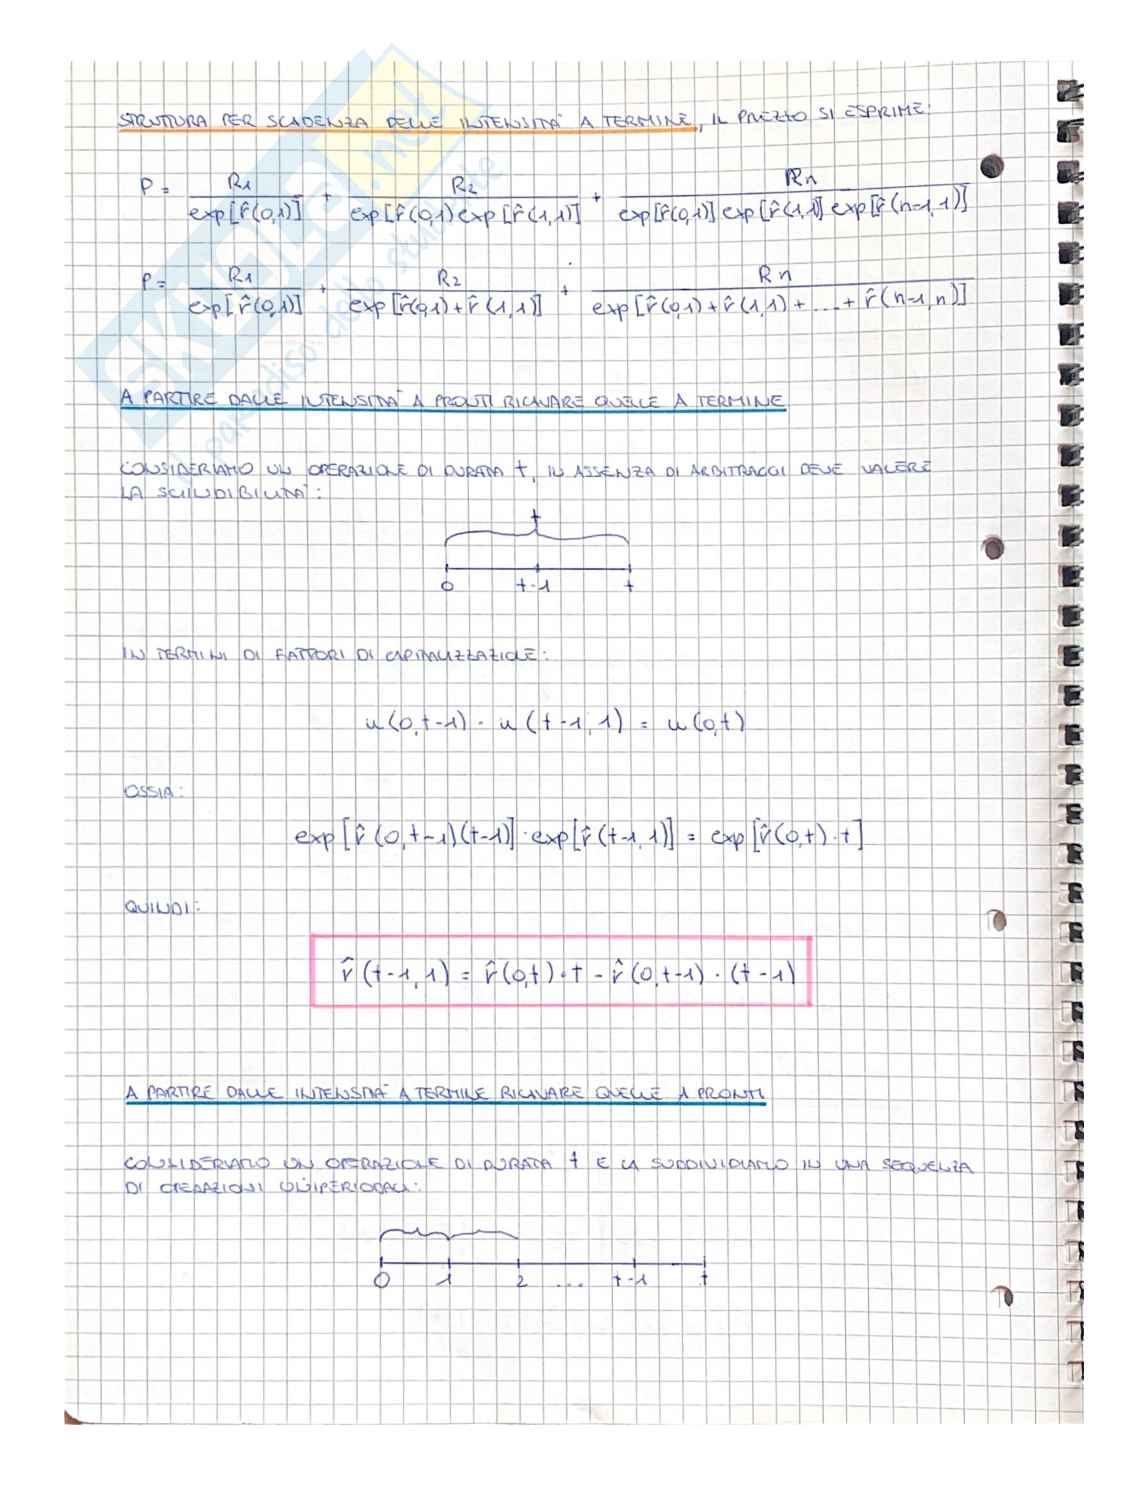 STRUTTURA PER SCADENZA DELLE INTENSITA' A TERMINE, IL PREZZO SI ESPRIME:
P = R1 / exp[r̂(0,1)] + R2 / exp[r̂(0,1) exp[r̂(1,1)] + Rn / exp[r̂(0,1)] exp[r̂(1,1] exp[r̂(n-1,1)]
P = R1 / exp[r̂(0,1)] + R2 / exp[r̂(0,1)+r̂(1,1)] + Rn / exp[r̂(0,1)+r̂(1,1)+...+r̂(n-1,n)]
A PARTIRE DALLE INTENSITA' A PRONTI RICAVARE QUELLE A TERMINE
CONSIDERIAMO UN OPERAZIONE DI DURATA t, IN ASSENZA DI ARBITRAGGI DEVE VALERE
LA SCINDIBILITA':
t
0 t-1 t
IN TERMINI DI FATTORI DI CAPITALIZZAZIONE:
u(0,t-1) · u(t-1,1) = u(0,t)
OSSIA:
exp[r̂(0,t-1)(t-1)]·exp[r̂(t-1,1)] = exp[r̂(0,t)·t]
QUINDI:
r̂(t-1,1) = r̂(0,t)·t - r̂(0,t-1)·(t-1)
A PARTIRE DALLE INTENSITA' A TERMINE RICAVARE QUELLE A PRONTI
CONSIDERIAMO UN OPERAZIONE DI DURATA t E LA SUDDIVIDIAMO IN UNA SEQUENZA
DI OPERAZIONI UNIPERIODALI:
0 1 2 ... t-1 t
skuola.net
il paradiso dello studente